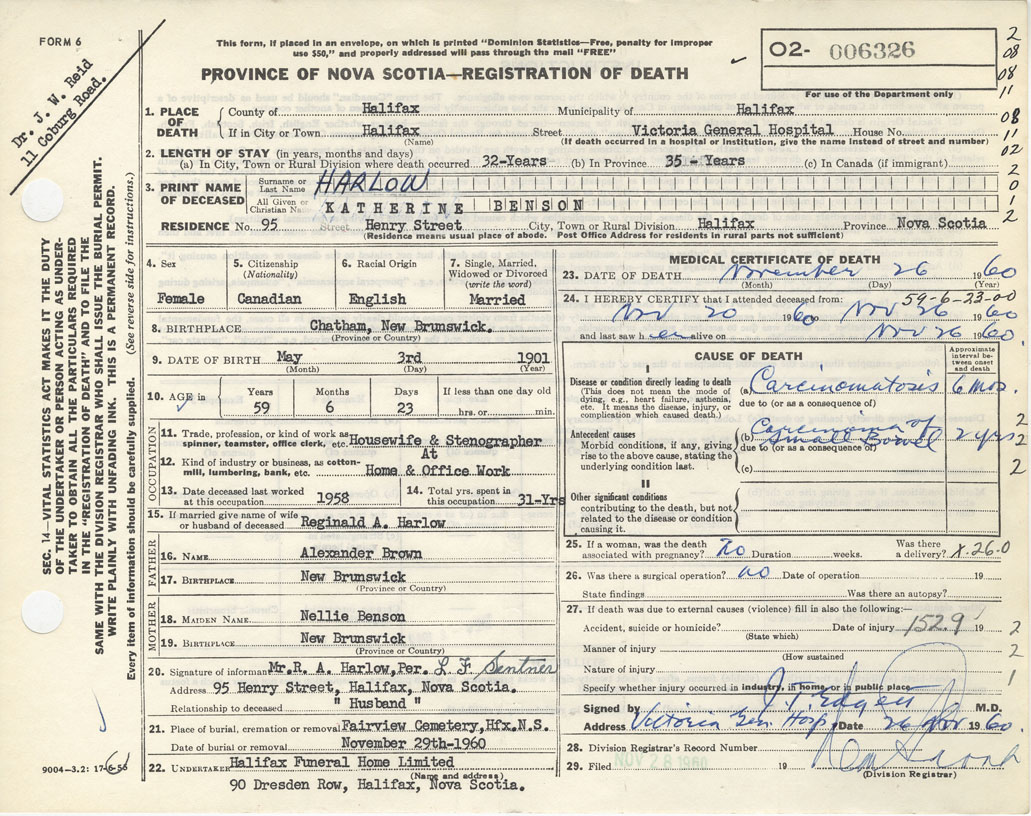 FORM 6
This form, if placed in an envelope, on which is printed "Dominion Statistics—Free, penalty for improper
use $50," and properly addressed will pass through the mail "FREE"
PROVINCE OF NOVA SCOTIA—REGISTRATION OF DEATH
O2- 006326
For use of the Department only
2
08
08
11
08
11
02
2
0
1
2
Dr. J. W. Reid
11 Coburg Road.
SEC. 14—VITAL STATISTICS ACT MAKES IT THE DUTY
OF THE UNDERTAKER OR PERSON ACTING AS UNDER-
TAKER TO OBTAIN ALL THE PARTICULARS REQUIRED
IN THE "REGISTRATION OF DEATH" AND TO FILE THE
SAME WITH THE DIVISION REGISTRAR WHO SHALL ISSUE THE BURIAL PERMIT.
WRITE PLAINLY WITH UNFADING INK. THIS IS A PERMANENT RECORD.
Every item of information should be carefully supplied. (See reverse side for instructions.)
9004—3.2: 17-6-56
1. PLACE OF DEATH
County of Halifax Municipality of Halifax
If in City or Town Halifax Street Victoria General Hospital House No.
(Name) (If death occurred in a hospital or institution, give the name instead of street and number)
2. LENGTH OF STAY (in years, months and days)
(a) In City, Town or Rural Division where death occurred 32-Years (b) In Province 35 - Years (c) In Canada (if immigrant)
3. PRINT NAME OF DECEASED
Surname or Last Name HARLOW
All Given or Christian KATHERINE BENSON
RESIDENCE No. 95 Street Henry Street City, Town or Rural Division Halifax Province Nova Scotia
(Residence means usual place of abode. Post Office Address for residents in rural parts not sufficient)
4. Sex
Female
5. Citizenship
(Nationality)
Canadian
6. Racial Origin
English
7. Single, Married,
Widowed or Divorced
(write the word)
Married
8. BIRTHPLACE Chatham, New Brunswick.
(Province or Country)
9. DATE OF BIRTH May 3rd 1901
(Month) (Day) (Year)
10. AGE in
Years Months Days If less than one day old
59 6 23 hrs. or min.
OCCUPATION
11. Trade, profession, or kind of work as
spinner, teamster, office clerk, etc. Housewife & Stenographer
At
12. Kind of industry or business, as cotton-
mill, lumbering, bank, etc. Home & Office Work
13. Date deceased last worked
at this occupation 1958
14. Total yrs. spent in
this occupation 31-Yrs
15. If married give name of wife
or husband of deceased Reginald A. Harlow
FATHER
16. NAME Alexander Brown
17. BIRTHPLACE New Brunswick
(Province or Country)
MOTHER
18. MAIDEN NAME Nellie Benson
19. BIRTHPLACE New Brunswick
(Province or Country)
20. Signature of informant Mr. R. A. Harlow, Per. L. F. Sentner
Address 95 Henry Street, Halifax, Nova Scotia.
Relationship to deceased " Husband "
21. Place of burial, cremation or removal Fairview Cemetery, Hfx. N.S.
Date of burial or removal November 29th-1960
22. UNDERTAKER Halifax Funeral Home Limited
(Name and address)
90 Dresden Row, Halifax, Nova Scotia.
MEDICAL CERTIFICATE OF DEATH
23. DATE OF DEATH November 26 1960
(Month) (Day) (Year)
59-6-23-00
24. I HEREBY CERTIFY that I attended deceased from:
Nov 20 1960 Nov 26 1960
and last saw her alive on Nov 26 1960.
CAUSE OF DEATH
Approximate
interval be-
tween onset
and death
I
Disease or condition directly leading to death
(This does not mean the mode of
dying, e.g., heart failure, asthenia,
etc. It means the disease, injury, or
complication which caused death.)
(a) Carcinomatosis 6 mos.
due to (or as a consequence of)
Antecedent causes
Morbid conditions, if any, giving
rise to the above cause, stating the
underlying condition last.
(b) Carcinoma of
Small Bowel 2 yrs
due to (or as a consequence of)
(c)
2
2
2
II
Other significant conditions
contributing to the death, but not
related to the disease or condition
causing it.
25. If a woman, was the death
associated with pregnancy? No Duration weeks. Was there
a delivery? X.26.0
26. Was there a surgical operation? no Date of operation 19
State findings Was there an autopsy?
27. If death was due to external causes (violence) fill in also the following:—
Accident, suicide or homicide? Date of injury 152.9 19 2
(State which)
Manner of injury 2
(How sustained
Nature of injury 1
Specify whether injury occurred in industry, in home, or in public place
Signed by J. T. Edgett M.D.
Address Victoria Gen Hosp. Date 26 Nov 1960.
28. Division Registrar's Record Number
29. Filed NOV 28 1960 19
(Division Registrar)